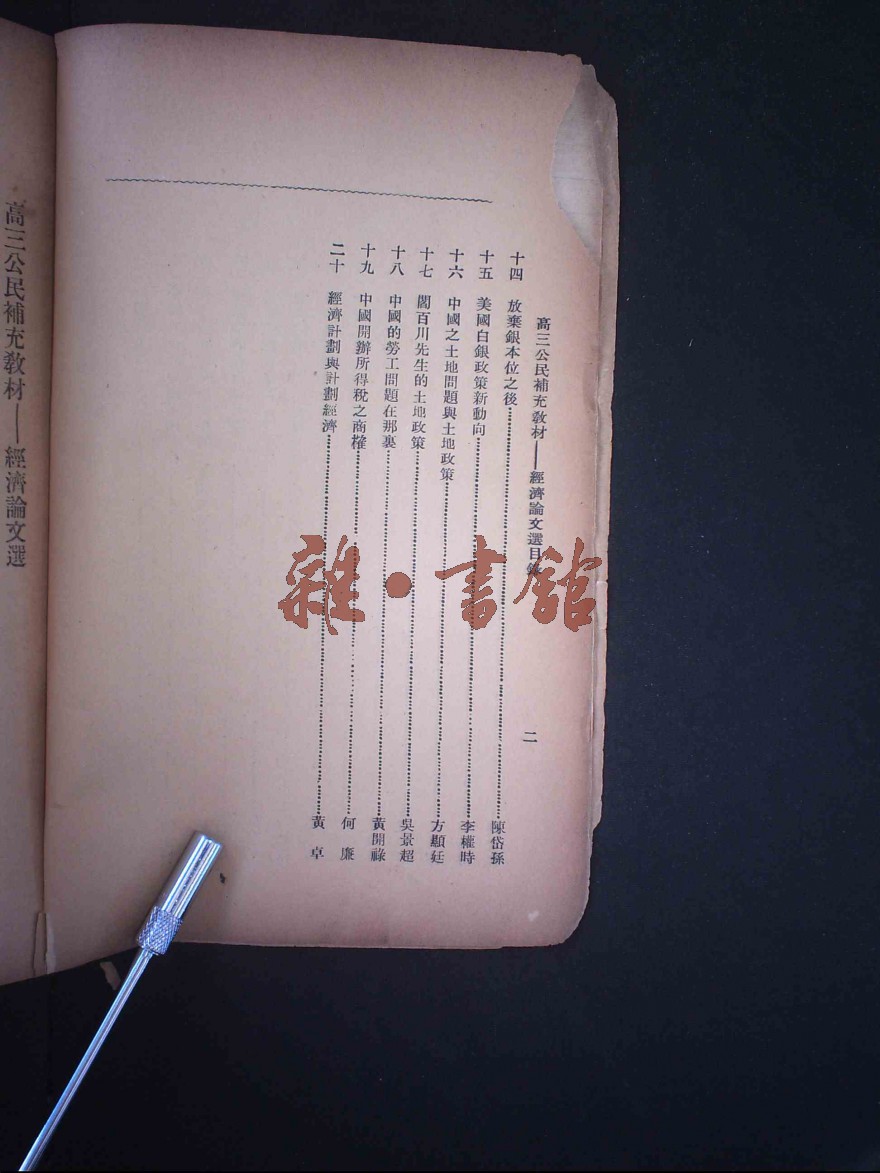 高三公民補充教材——經濟論文選目錄
二
十四 放棄銀本位之後……陳岱孫
十五 美國白銀政策新動向……李權時
十六 中國之土地問題與土地政策……方顯廷
十七 閻百川先生的土地政策……吳景超
十八 中國的勞工問題在那裏……黃開祿
十九 中國開辦所得稅之商榷……何廉
二十 經濟計劃與計劃經濟……黃卓
高三公民補充教材——經濟論文選
雜·書館